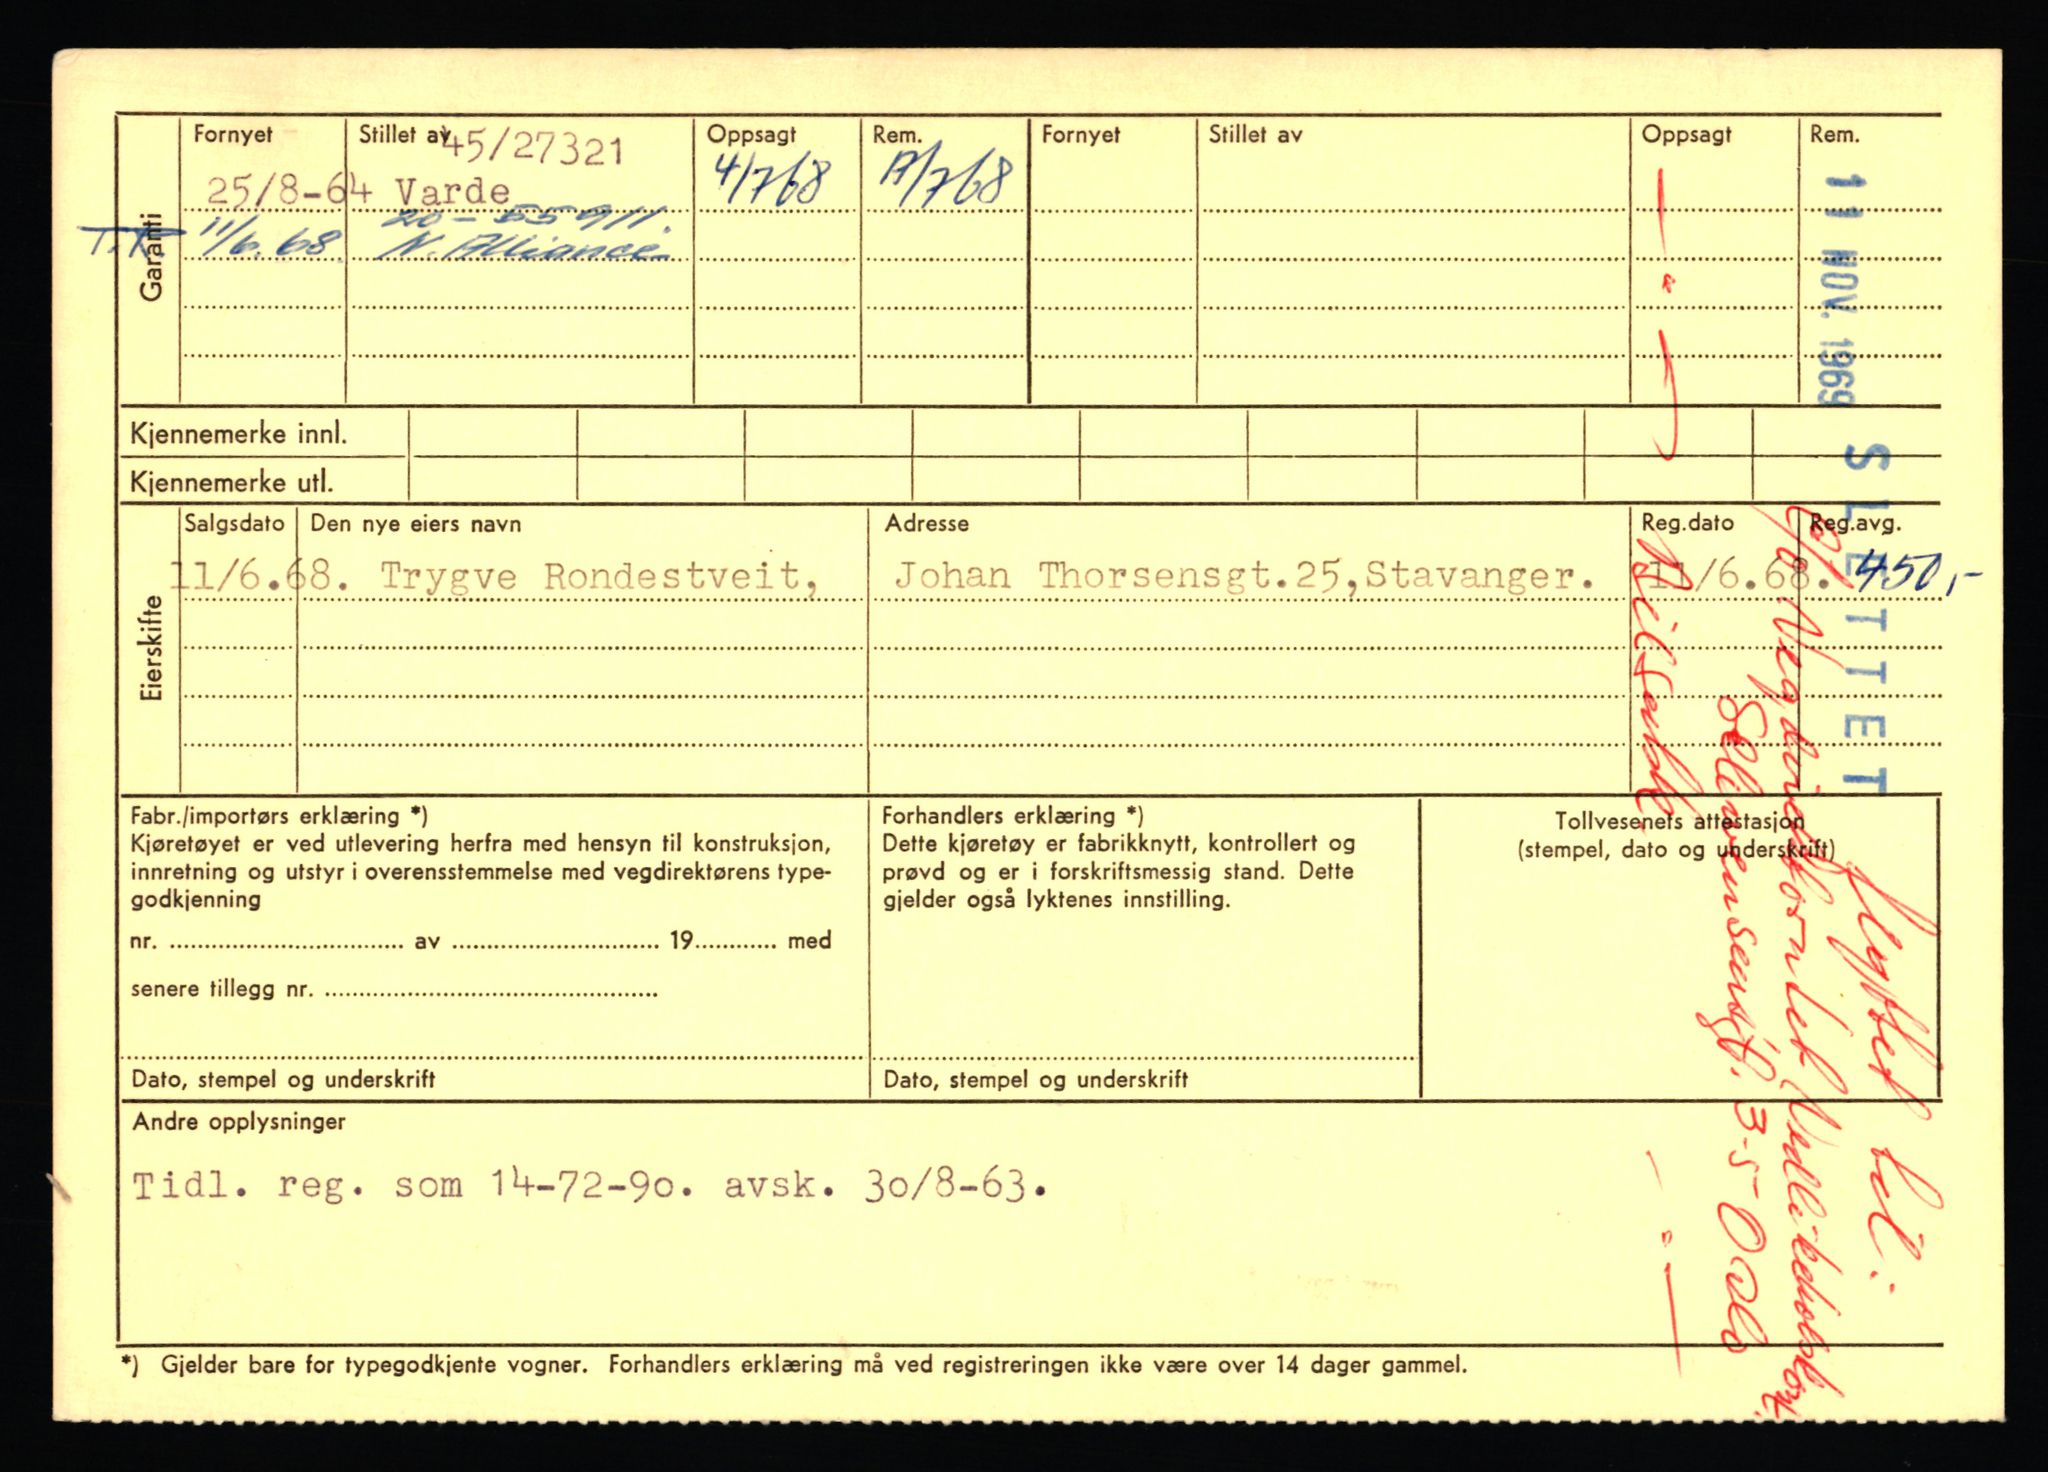 Garanti
Fornyet Stillet av Oppsagt Rem. Fornyet Stillet av Oppsagt Rem.
45/27321
25/8-64 Varde 4/768 17/768
20-55911.
T.R. 11/6.68. N. Alliance
Kjennemerke innl.
Kjennemerke utl.
Eierskifte
Salgsdato Den nye eiers navn Adresse Reg.dato Reg.avg.
11/6.68. Trygve Rondestveit, Johan Thorsensgt.25,Stavanger. 11/6.68. 450,-
Fabr./importørs erklæring *)
Kjøretøyet er ved utlevering herfra med hensyn til konstruksjon,
innretning og utstyr i overensstemmelse med vegdirektørens type-
godkjenning
nr. .................. av .................. 19............ med
senere tillegg nr. ..................
Dato, stempel og underskrift
Forhandlers erklæring *)
Dette kjøretøy er fabrikknytt, kontrollert og
prøvd og er i forskriftsmessig stand. Dette
gjelder også lyktenes innstilling.
Dato, stempel og underskrift
Tollvesenets attestasjon
(stempel, dato og underskrift)
Andre opplysninger
Tidl. reg. som 14-72-90. avsk. 30/8-63.
*) Gjelder bare for typegodkjente vogner. Forhandlers erklæring må ved registreringen ikke være over 14 dager gammel.
11 NOV. 1969 SLETTET
flyttet til:
3-5 Oslo